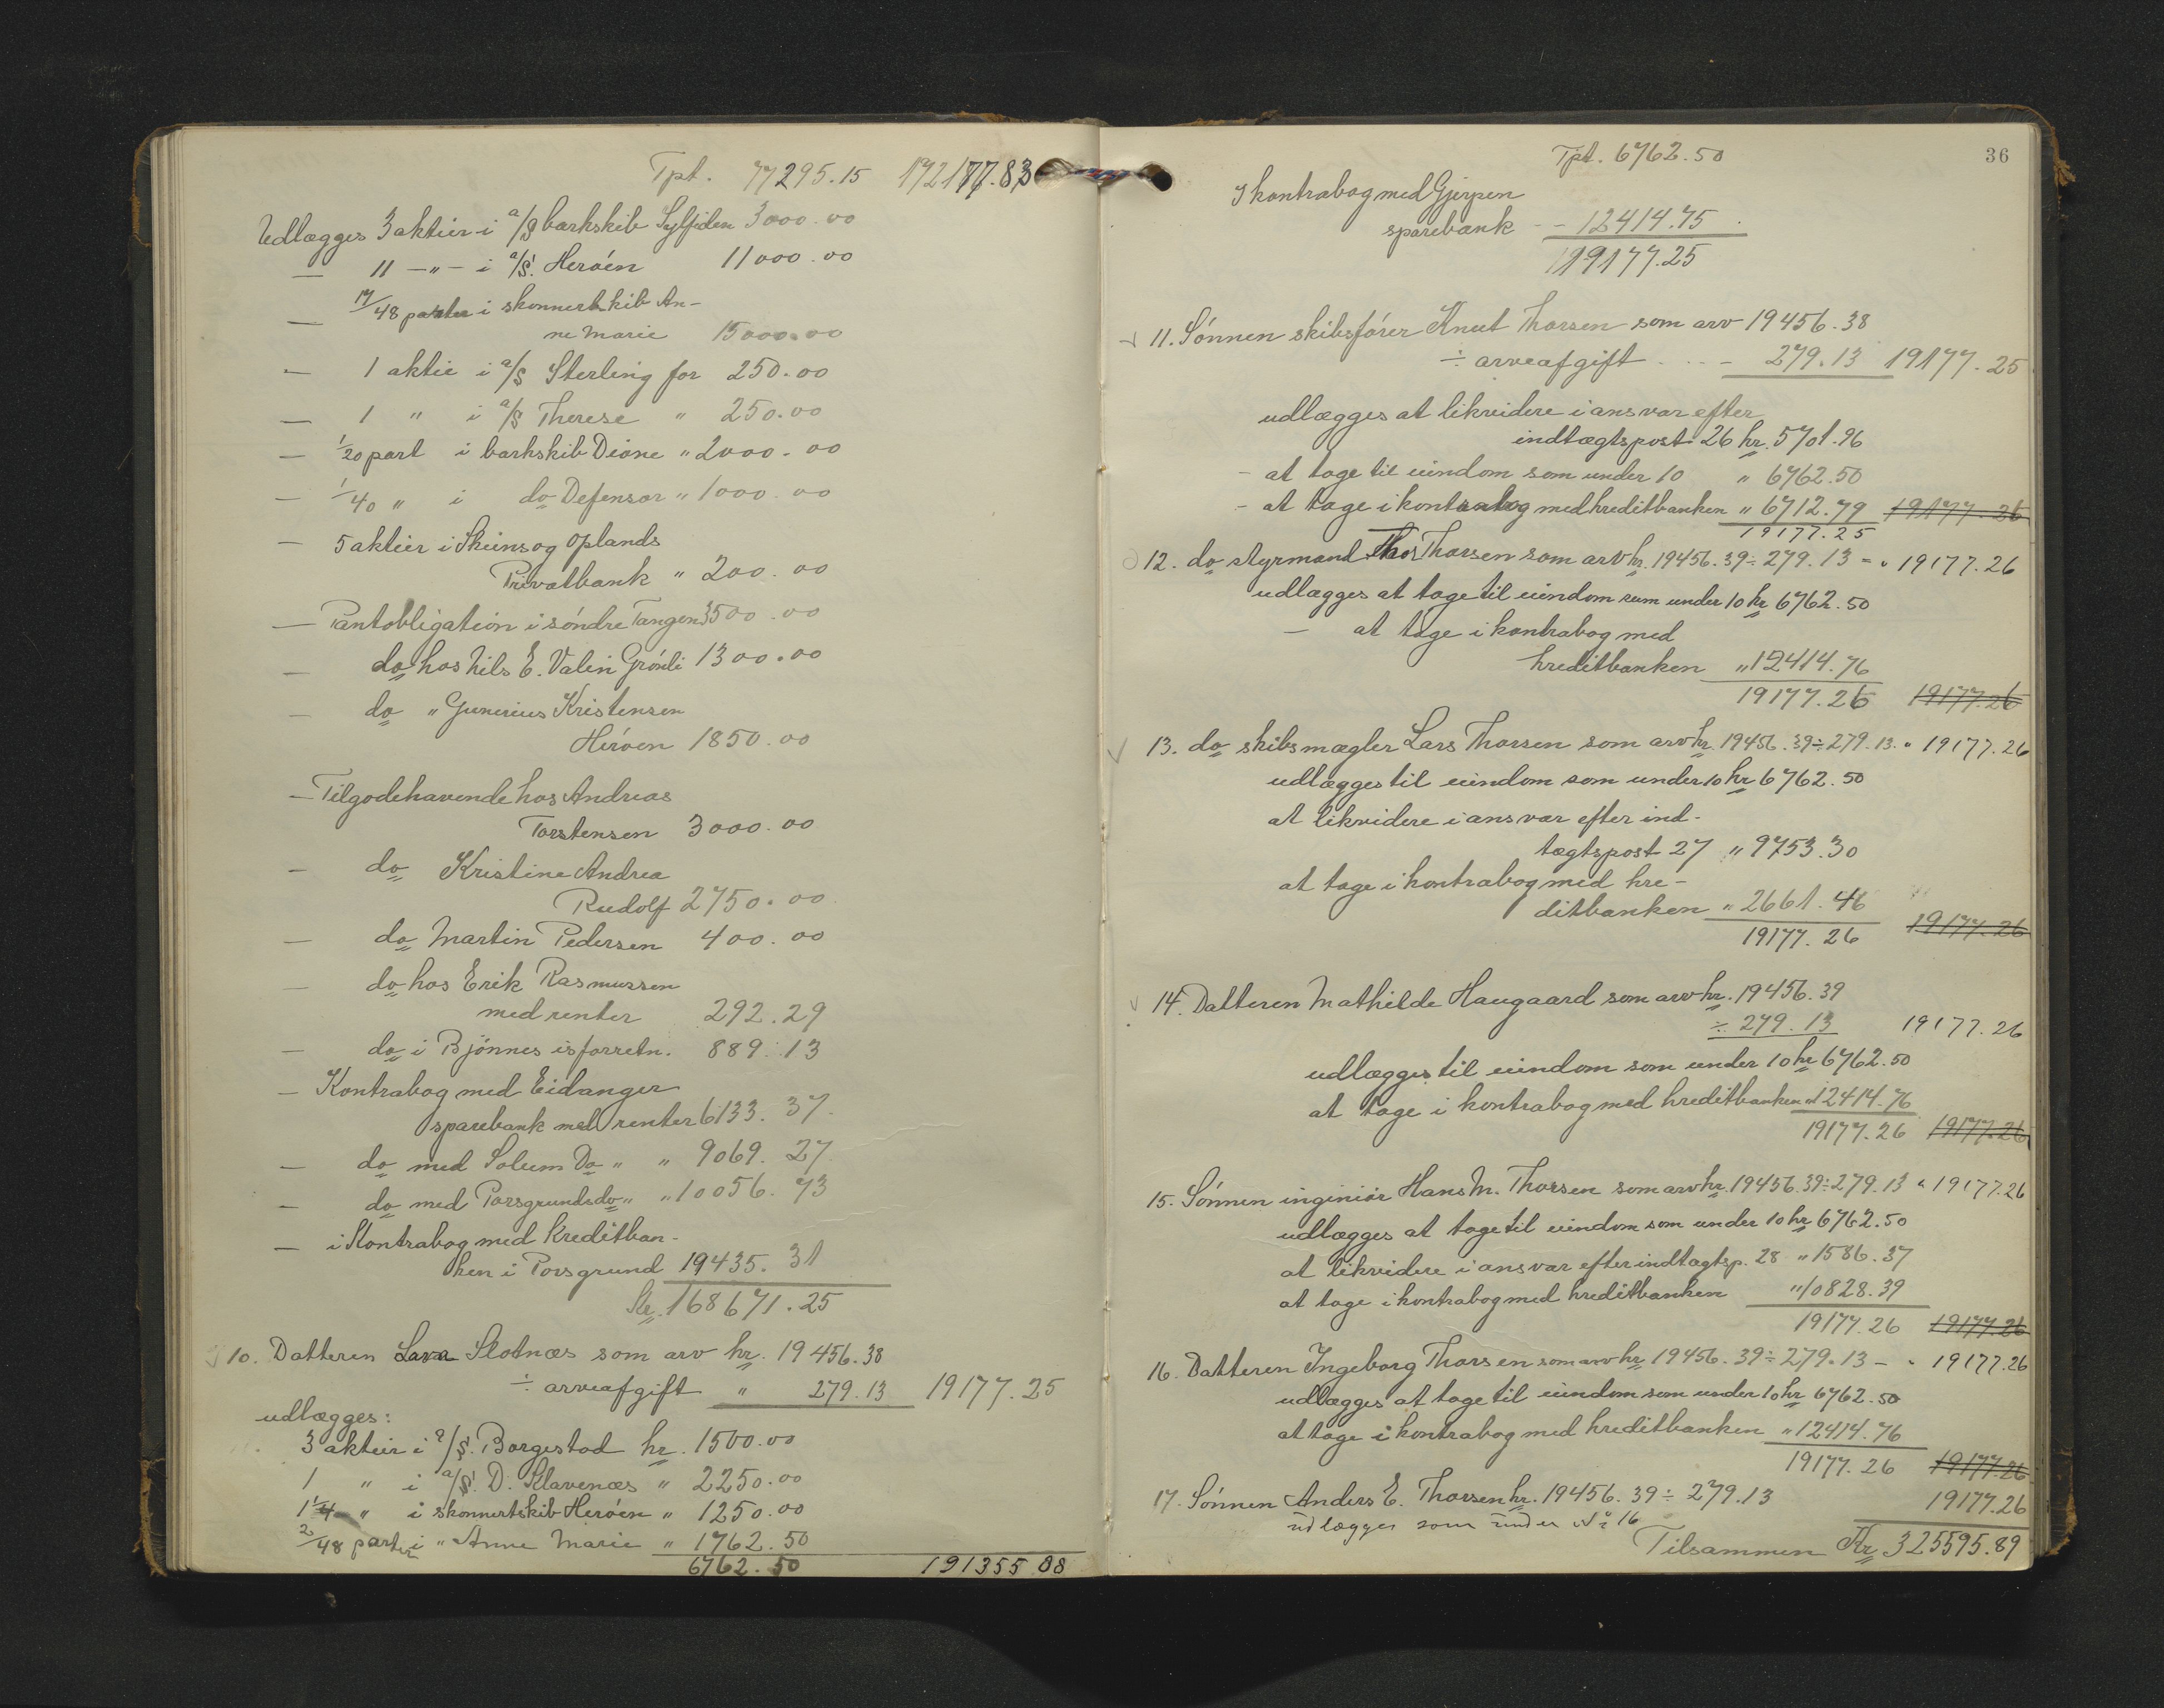 Tpt. 77295.15 172177.83
Udlægges 3 aktier i a/s barkskib Sylfiden 3000.00
— 11 —"— i a/S. Herøen 11000.00
— 17/48 parter i skonnertskib An-
ne Marie 15000.00
— 1 aktie i a/S Sterling for 250.00
— 1 " i a/S Therese " 250.00
— 1/20 part i barkskib Dione " 2000.00
— 1/40 " i do Defensor " 1000.00
— 5 aktier i Skiens og Oplands
Privatbank " 200.00
— Pantobligation i søndre Tangen 3500.00
— do hos Nils E. Valin Grønli 1300.00
— do " Gunerius Kristensen
Herøen 1850.00
— Tilgodehavende hos Andreas
Torstensen 3000.00
— do Kristine Andrea
Rudolf 2750.00
— do Martin Pedersen 400.00
— do hos Erik Rasmussen
med renter 292.29
— do i Bjønnes isforretn. 889.13
— Kontrabog med Eidanger
sparebank med renter 6133.37
— do med Solum Do " " 9069.27
— do med Porsgrunds do " " 10056.73
— i Kontrabog med Kreditban-
ken i Porsgrund 19435.31
Kr. 168671.25
10. Datteren Lava Slotnæs som arv kr. 19456.38
÷ arveafgift " 279.13 19177.25
udlægges:
3 aktier i a/S. Borgestad kr. 1500.00
1 " i a/S. D. Klavenæs " 2250.00
1 1/4 " i skonnertskib Herøen " 1250.00
2/48 parter i " Anne Marie " 1762.50
6762.50 191355.08
36
Tpt. 6762.50
I kontrabog med Gjerpen
sparebank - - 12414.75
19177.25
11. Sønnen skibsfører Knut Thorsen som arv 19456.38
÷ arveafgift . . . - 279.13 19177.25
udlægges at likvidere i ansvar efter
indtægtspost 26 kr. 5701.96
- at tage til eiendom som under 10 " 6762.50
- at tage i kontrabog med kreditbanken " 6712.79 19177.26
19177.25
12. do styrmand Thor Thorsen som arv kr. 19456.39 ÷ 279.13 = " 19177.26
udlægges at tage til eiendom som under 10 kr 6762.50
— at tage i kontrabog med
kreditbanken " 12414.76
19177.26 19177.26
13. do skibsmægler Lars Thorsen som arv kr. 19456.39 ÷ 279.13. " 19177.26
udlægges til eiendom som under 10 kr 6762.50
at likvidere i ansvar efter ind-
tægtspost 27 " 9753.30
at tage i kontrabog med kre-
ditbanken " 2661.46
19177.26 19177.26
14. Datteren Mathilde Haugaard som arv kr. 19456.39
÷ 279.13 19177.26
udlægges til eiendom som under 10 kr 6762.50
at tage i kontrabog med kreditbanken " 12414.76
19177.26 19177.26
15. Sønnen ingeniør Hans M. Thorsen som arv kr. 19456.39 ÷ 279.13 " 19177.26
udlægges at tage til eiendom som under 10 kr 6762.50
at likvidere i ansvar efter indtægtsp. 28 " 1586.37
at tage i kontrabog med kreditbanken " 10828.39
19177.26 19177.26
16. Datteren Ingeborg Thorsen som arv kr 19456.39 ÷ 279.13 - " 19177.26
udlægges at tage til eiendom som under 10 kr 6762.50
at tage i kontrabog med kreditbanken " 12414.76
19177.26 19177.26
17. Sønnen Anders E. Thorsen kr. 19456.39 ÷ 279.13 19177.26
udlægges som under No 16
Tilsammen Kr 325595.89